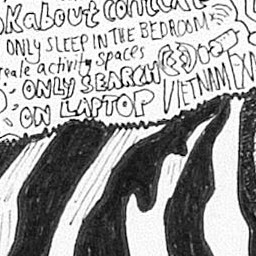 about CONTEXT
ONLY SLEEP IN THE BEDROOM
create activity spaces
ONLY SEARCH
ON LAPTOP
VIETNAM